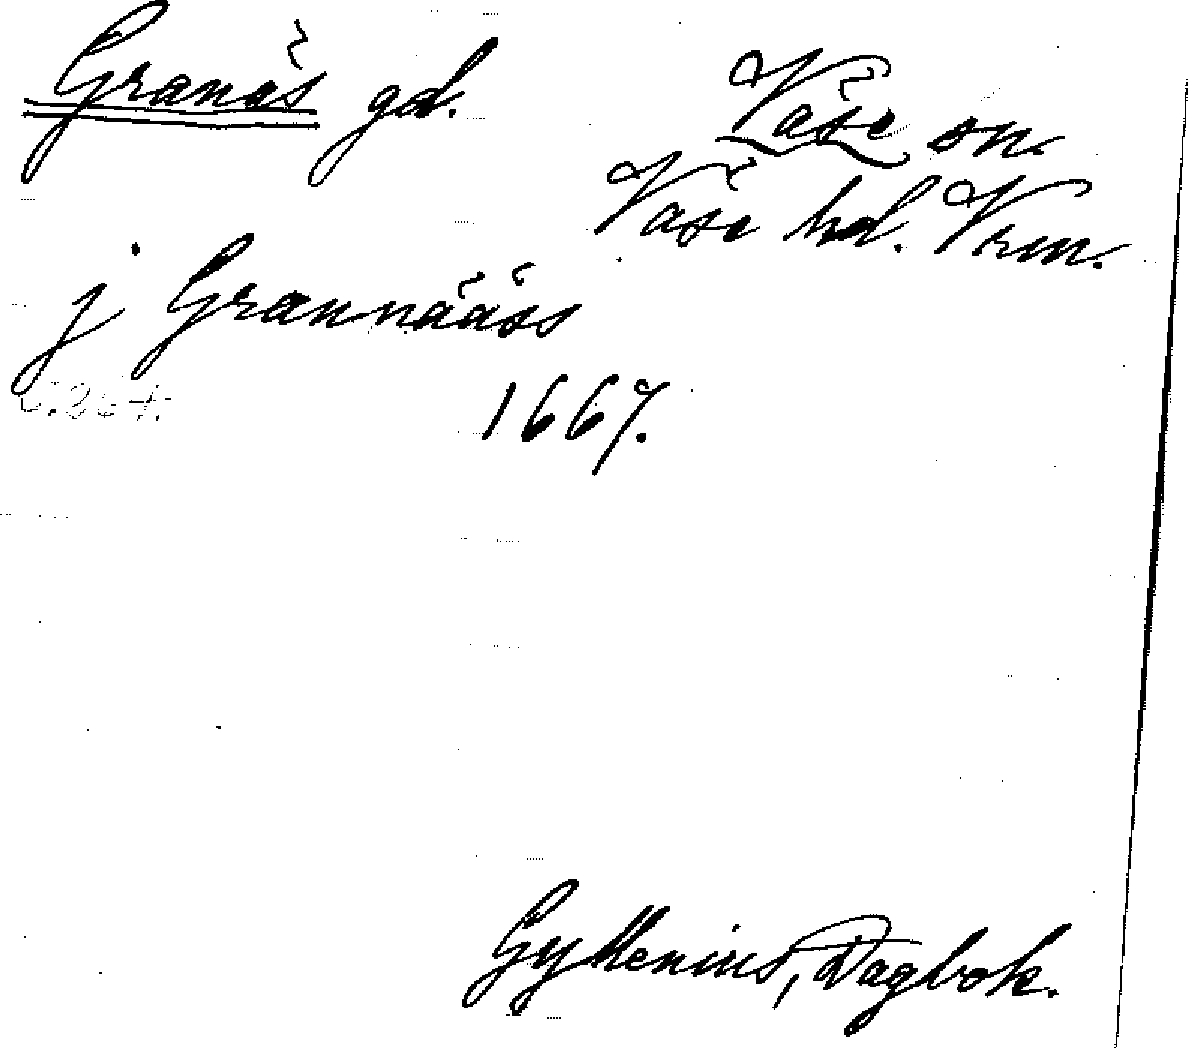 Granås gd. Väse sn.
Väse hd. Vrm.
j Grannååss
1667.
Gyllenius, Dagbok.